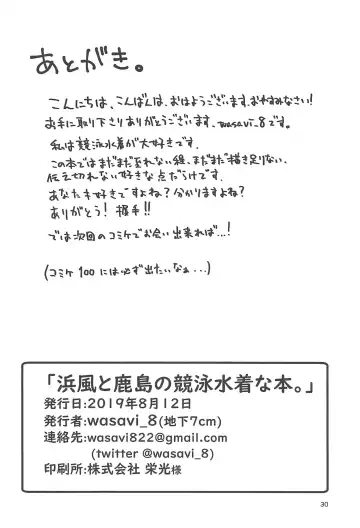 あとがき。
こんにちは、こんばんは、おはようございます、おやすみなさい!
お手に取り下さりありがとうございます、wasavi_8です。
私は競泳水着が大好きです。
この本ではまだまだ至れない線、まだまだ描き足りない、
伝え切れない好きな点だらけです。
あなたも好きですよね?分かりますよね?
ありがとう!握手!!
では次回のコミケでお会い出来れば…!
(コミケ100には必ず出たいなぁ...)
「浜風と鹿島の競泳水着な本。」
発行日:2019年8月12日
発行者:wasavi_8(地下7cm)
連絡先:wasavi822@gmail.com
(twitter @wasavi_8)
印刷所:株式会社 栄光様
30